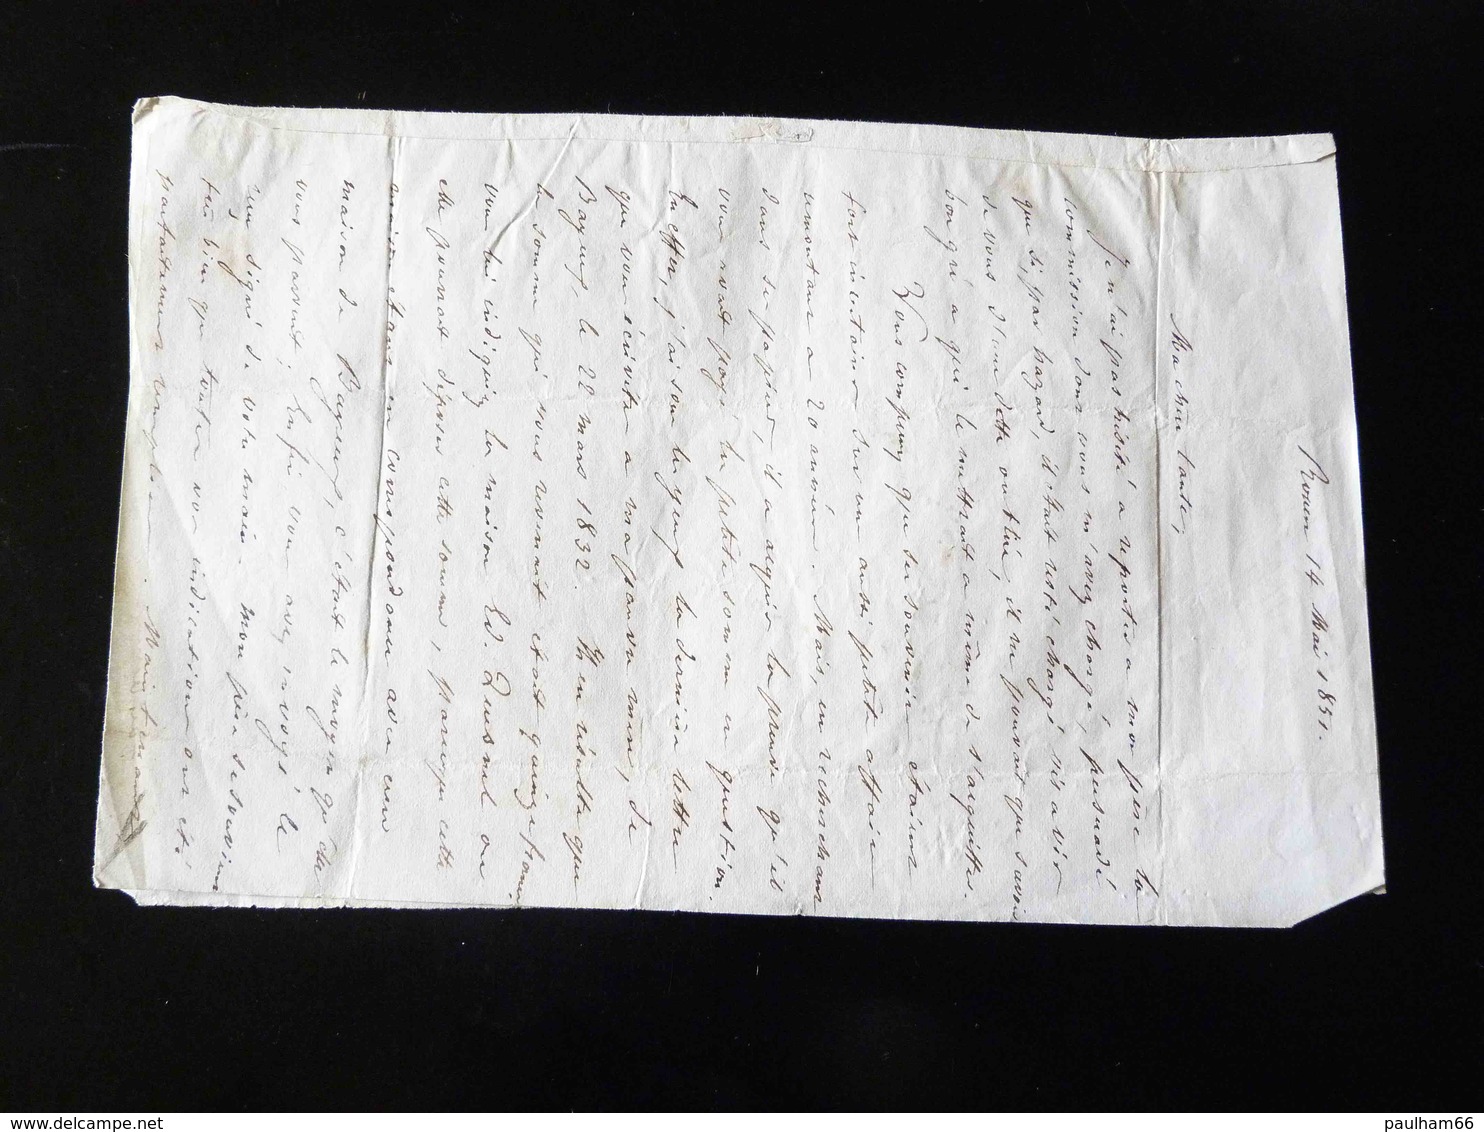 Rouen 14 Mai 1851.
Ma chère tante,
Je n'ai pas hésité à reporter à mon père la
commission dont vous m'avez chargé, persuadé
que si, par hazard, il était resté chargé vis à vis
de vous d'une dette oubliée, il ne pouvait que savoir
bon gré à qui le mettrait à même de s'acquitter.
Vous comprenez que ses souvenirs étaient
fort incertains sur une aussi petite affaire
remontant à 20 années. Mais, en recherchant
dans ses papiers, il a acquis la preuve qu'il
vous avait payé la petite somme en question.
En effet, j'ai sous les yeux la dernière lettre
que vous écrivîtes à ma pauvre mère, de
Bayeux, le 22 mars 1832. Il en résulte que
la somme qui vous revenait était quinze francs
vous lui indiquiez la maison Ed. Quesnel où
elle pouvait déposer cette somme, parceque cette
maison étant en correspondance avec une
maison de Bayeux, c'était le moyen qu'elle
vous parvint; Enfin vous avez envoyé le
reçu signé de votre main. mon père se souvient
très bien que toutes vos indications ont été
parfaitement remplies. Maintenant
paulham66